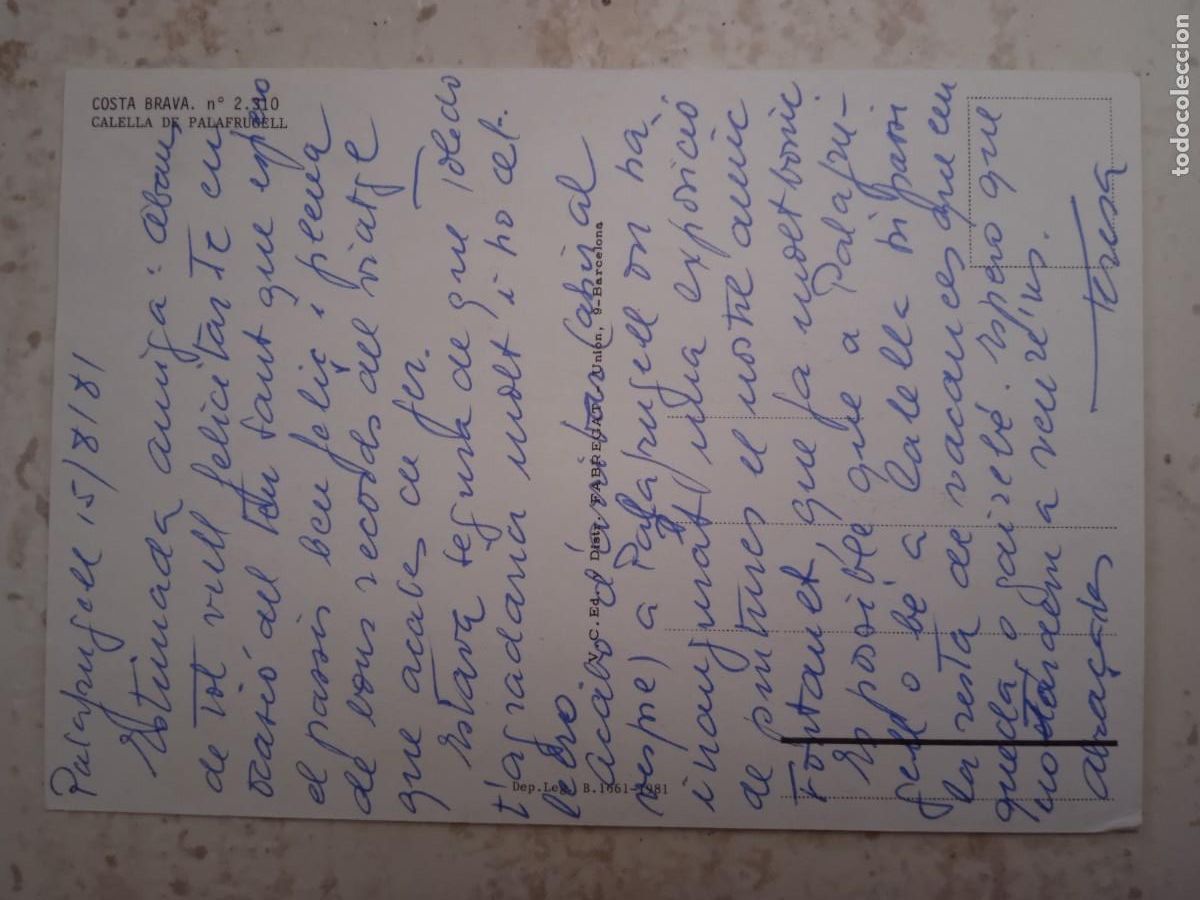 COSTA BRAVA. nº 2.310
CALELLA DE PALAFRUGELL
Palafrugell 15/8/81
Estimada amiga: abans
de tot vull felicitar-te en
ocasió del teu sant que espero
el passis ben feliç i plena
de bons records del viatge
que acabes de fer.
Estava segura de que Toledo
t'agradaria molt i ho cel-
lebro
Acabo d'arribar (ahir al
vespre) a Palafrugell on ha
inaugurat una exposició
de pintures el nostre amic
Fontanet, que fa molt bonic
Es possible que a Palafru-
gell o bé a Calella hi passi
la resta de vacances que em
queda o gairebé. Espero que
no tardem a veure'ns.
abraçades
Teresa
V.C.Ed. Distr. FABREGAT, Unión, 9-Barcelona
Dep.Leg. B.1661-1981
todocoleccion